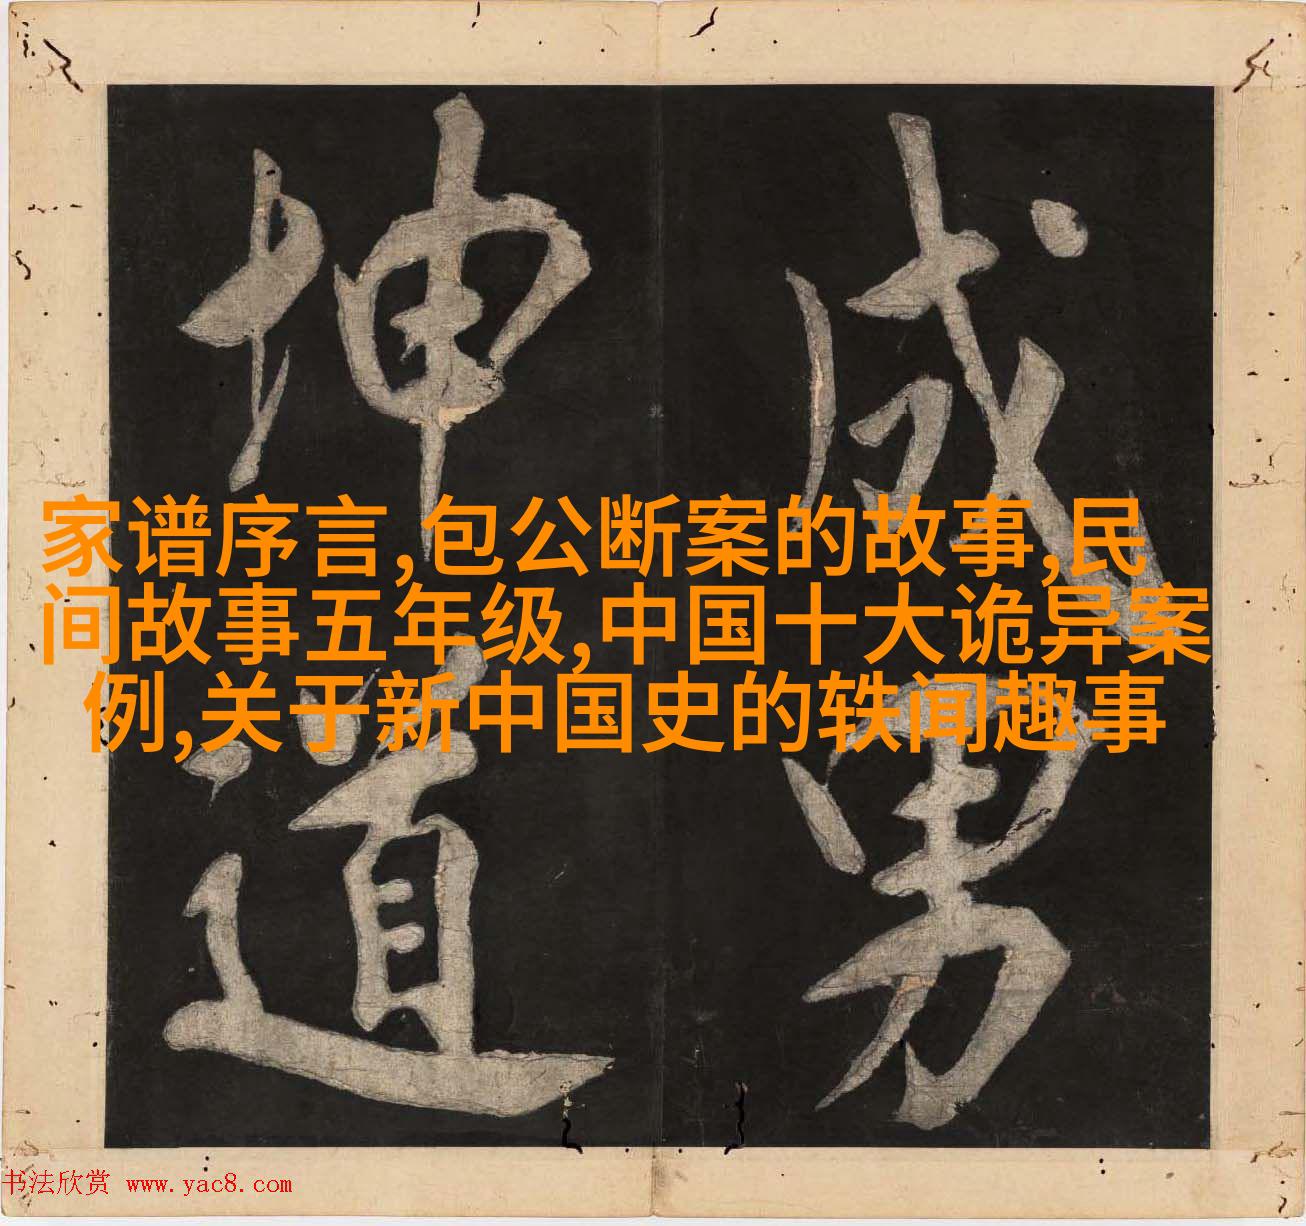 成男
坤道
家谱序言,包公断案的故事,民
间故事五年级,中国十大诡异案
例,关于新中国史的轶闻趣事
书法欣赏 www.yac8.com